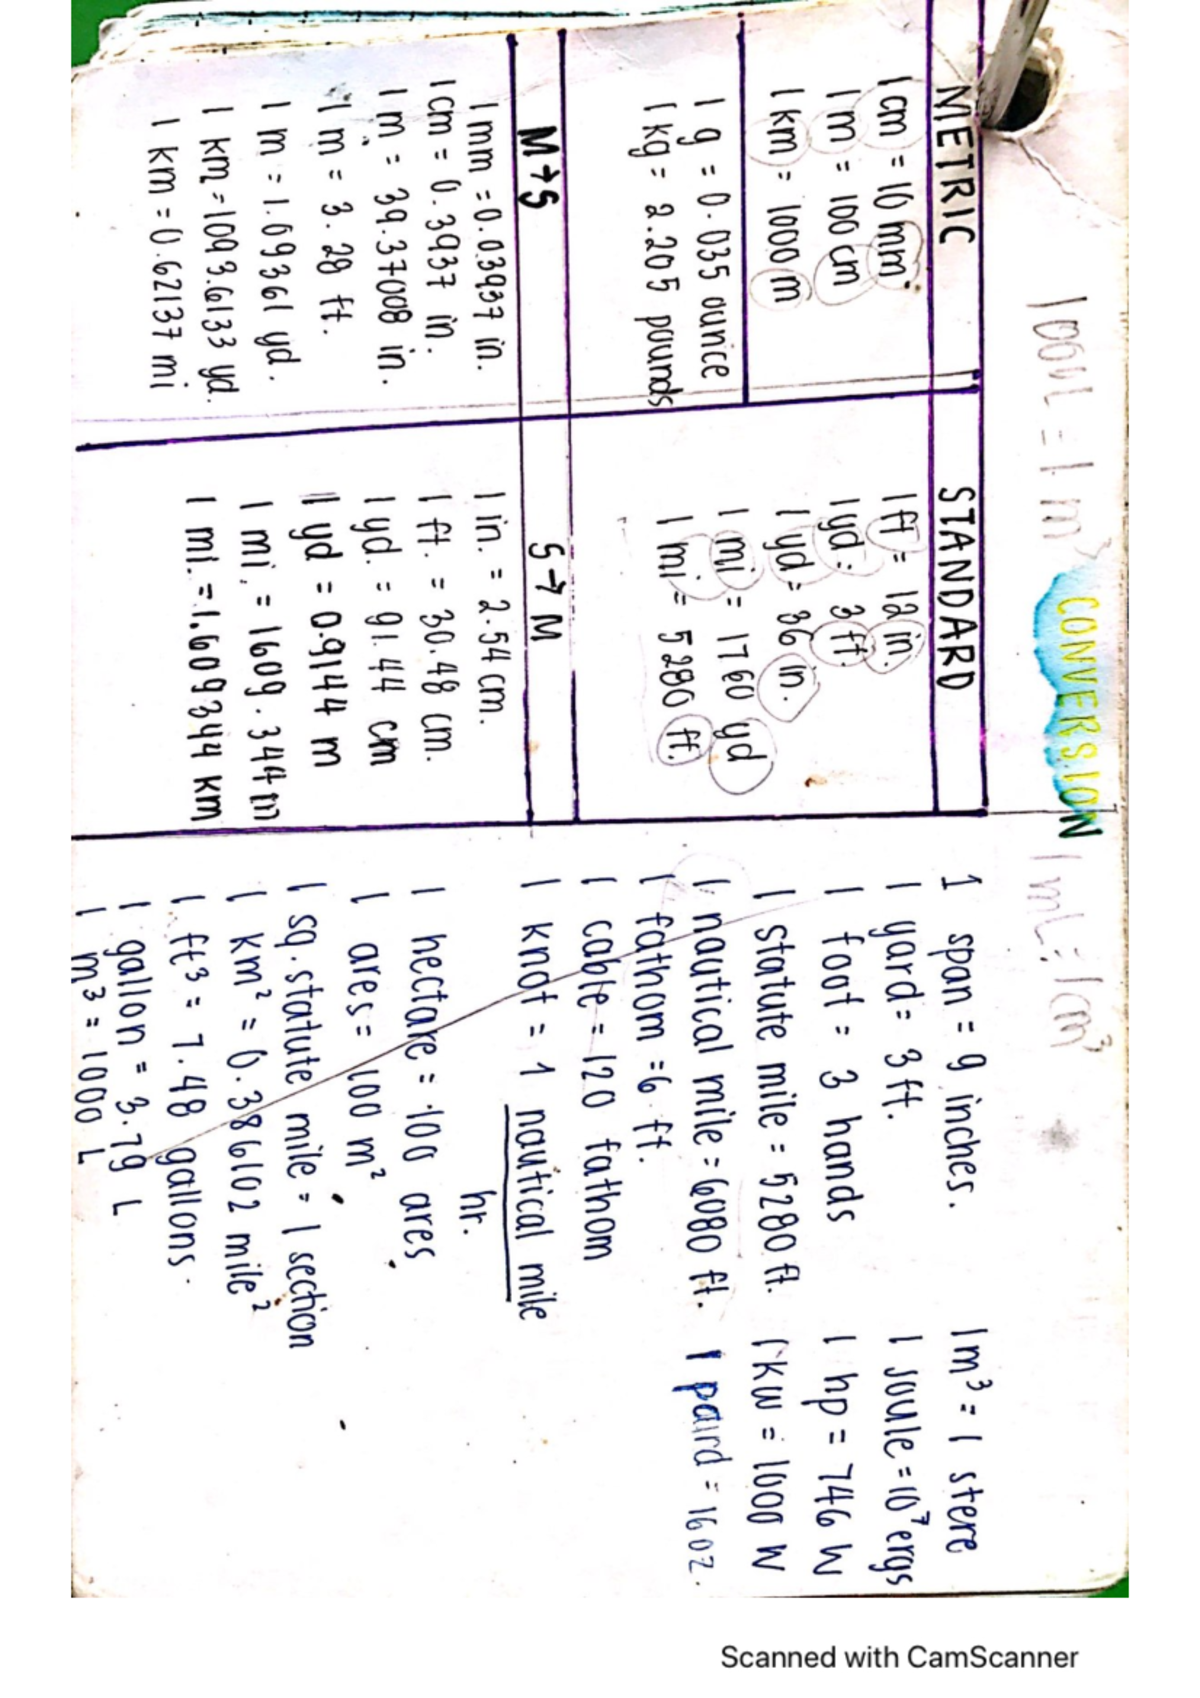 1000L = 1 m³ CONVERSION 1 mL = 1cm³
METRIC
1 cm = 10 mm
1 m = 100 cm
1 km = 1000 m
1 g = 0.035 ounce
1 kg = 2.205 pounds
STANDARD
1 ft = 12 in.
1 yd = 3 ft.
1 yd = 36 in.
1 mi = 1760 yd
1 mi = 5280 ft.
M→S
1 mm = 0.03937 in.
1 cm = 0.3937 in.
1 m = 39.37008 in.
1 m = 3.28 ft.
1 m = 1.09361 yd.
1 km = 1093.6133 yd.
1 km = 0.62137 mi
S→M
1 in. = 2.54 cm.
1 ft. = 30.48 cm.
1 yd. = 91.44 cm
1 yd = 0.9144 m
1 mi. = 1609.344 m
1 mi. = 1.609344 km
1 span = 9 inches.
1 yard = 3 ft.
1 foot = 3 hands
1 statute mile = 5280 ft.
1 nautical mile = 6080 ft.
1 fathom = 6 ft.
1 cable = 120 fathom
1 knot = 1 nautical mile
hr.
1 hectare = 100 ares
1 ares = 100 m²
1 sq. statute mile = 1 section
1 km² = 0.386102 mile²
1 ft³ = 7.48 gallons.
1 gallon = 3.79 L
1 m³ = 1000 L
1m³ = 1 stere
1 Joule = 10⁷ ergs
1 hp = 746 W
1 kw = 1000 W
1 = 16 oz.
Scanned with CamScanner